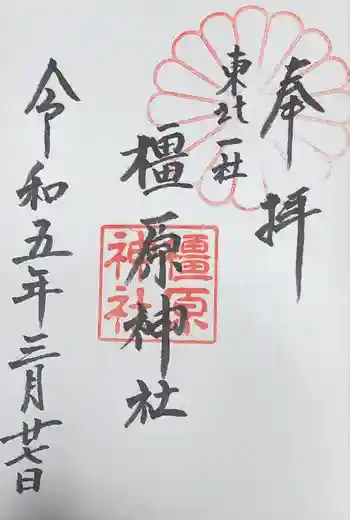 奉拝
東北一社
橿原神社
橿原
神社
令和五年三月廿七日